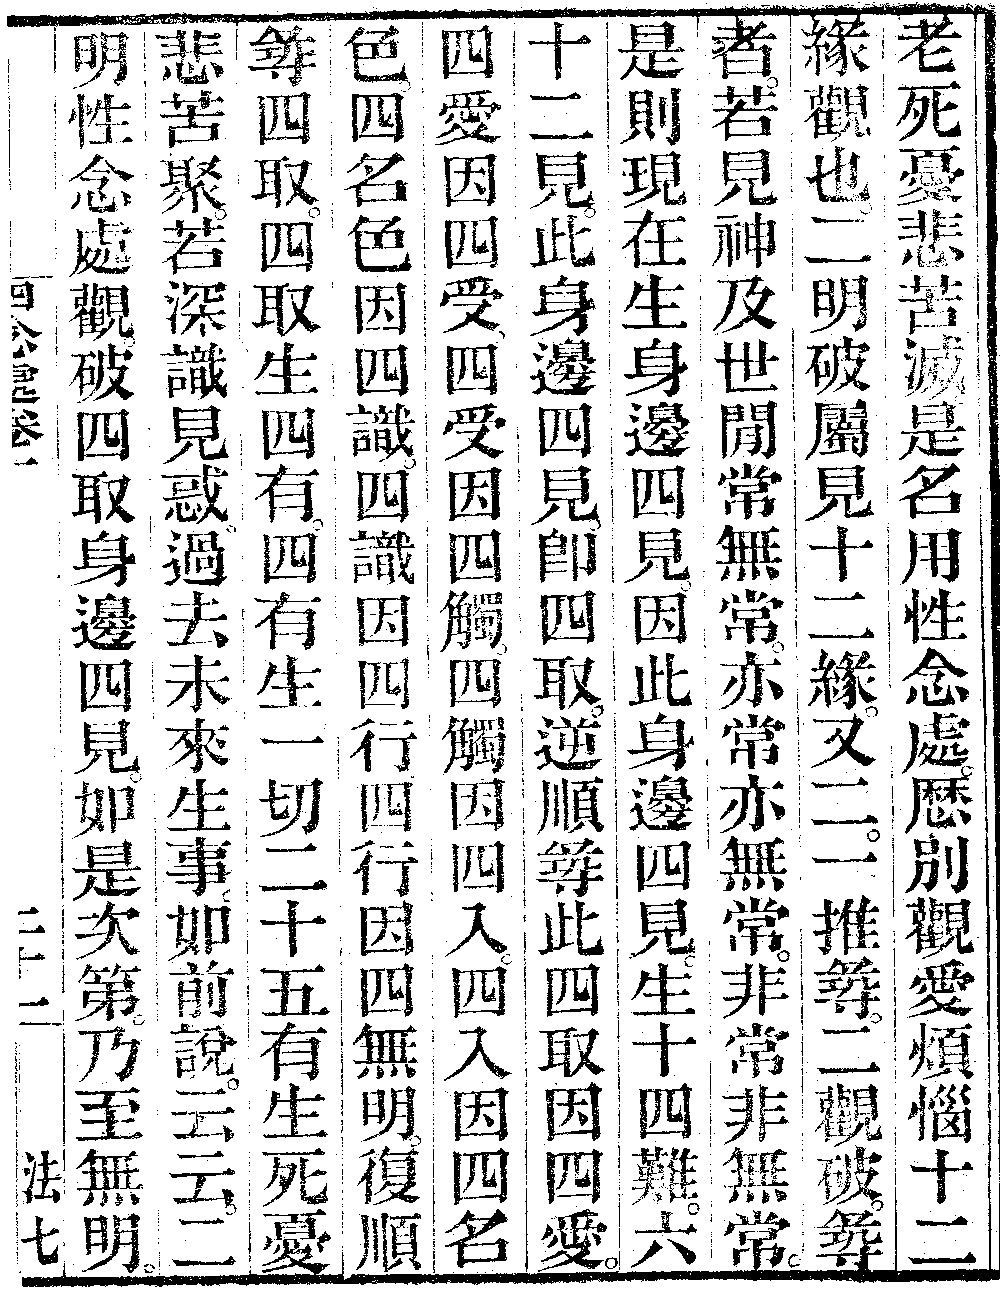 老死憂悲苦滅是名用性念處。歷別觀愛煩惱十二
緣觀也。二明破屬見十二緣。又二。一推尋。二觀破。尋
者。若見神及世間常無常。亦常亦無常。非常非無常。
是則現在生身邊四見、因此身邊四見。生十四難。六
十二見。此身邊四見、卽四取。逆順尋此四取因四愛。
四愛因四受、四受因四觸。四觸因四入。四入因四名
色、四名色因四識。四識因四行四行因四無明。復順
尋四取。四取生四有。四有生一切二十五有生死憂
悲苦聚。若深識見惑。過去未來生事。如前說。云云。二
明性念處觀。破四取身邊四見。如是次第。乃至無明。
四念處卷一
二十二
法七